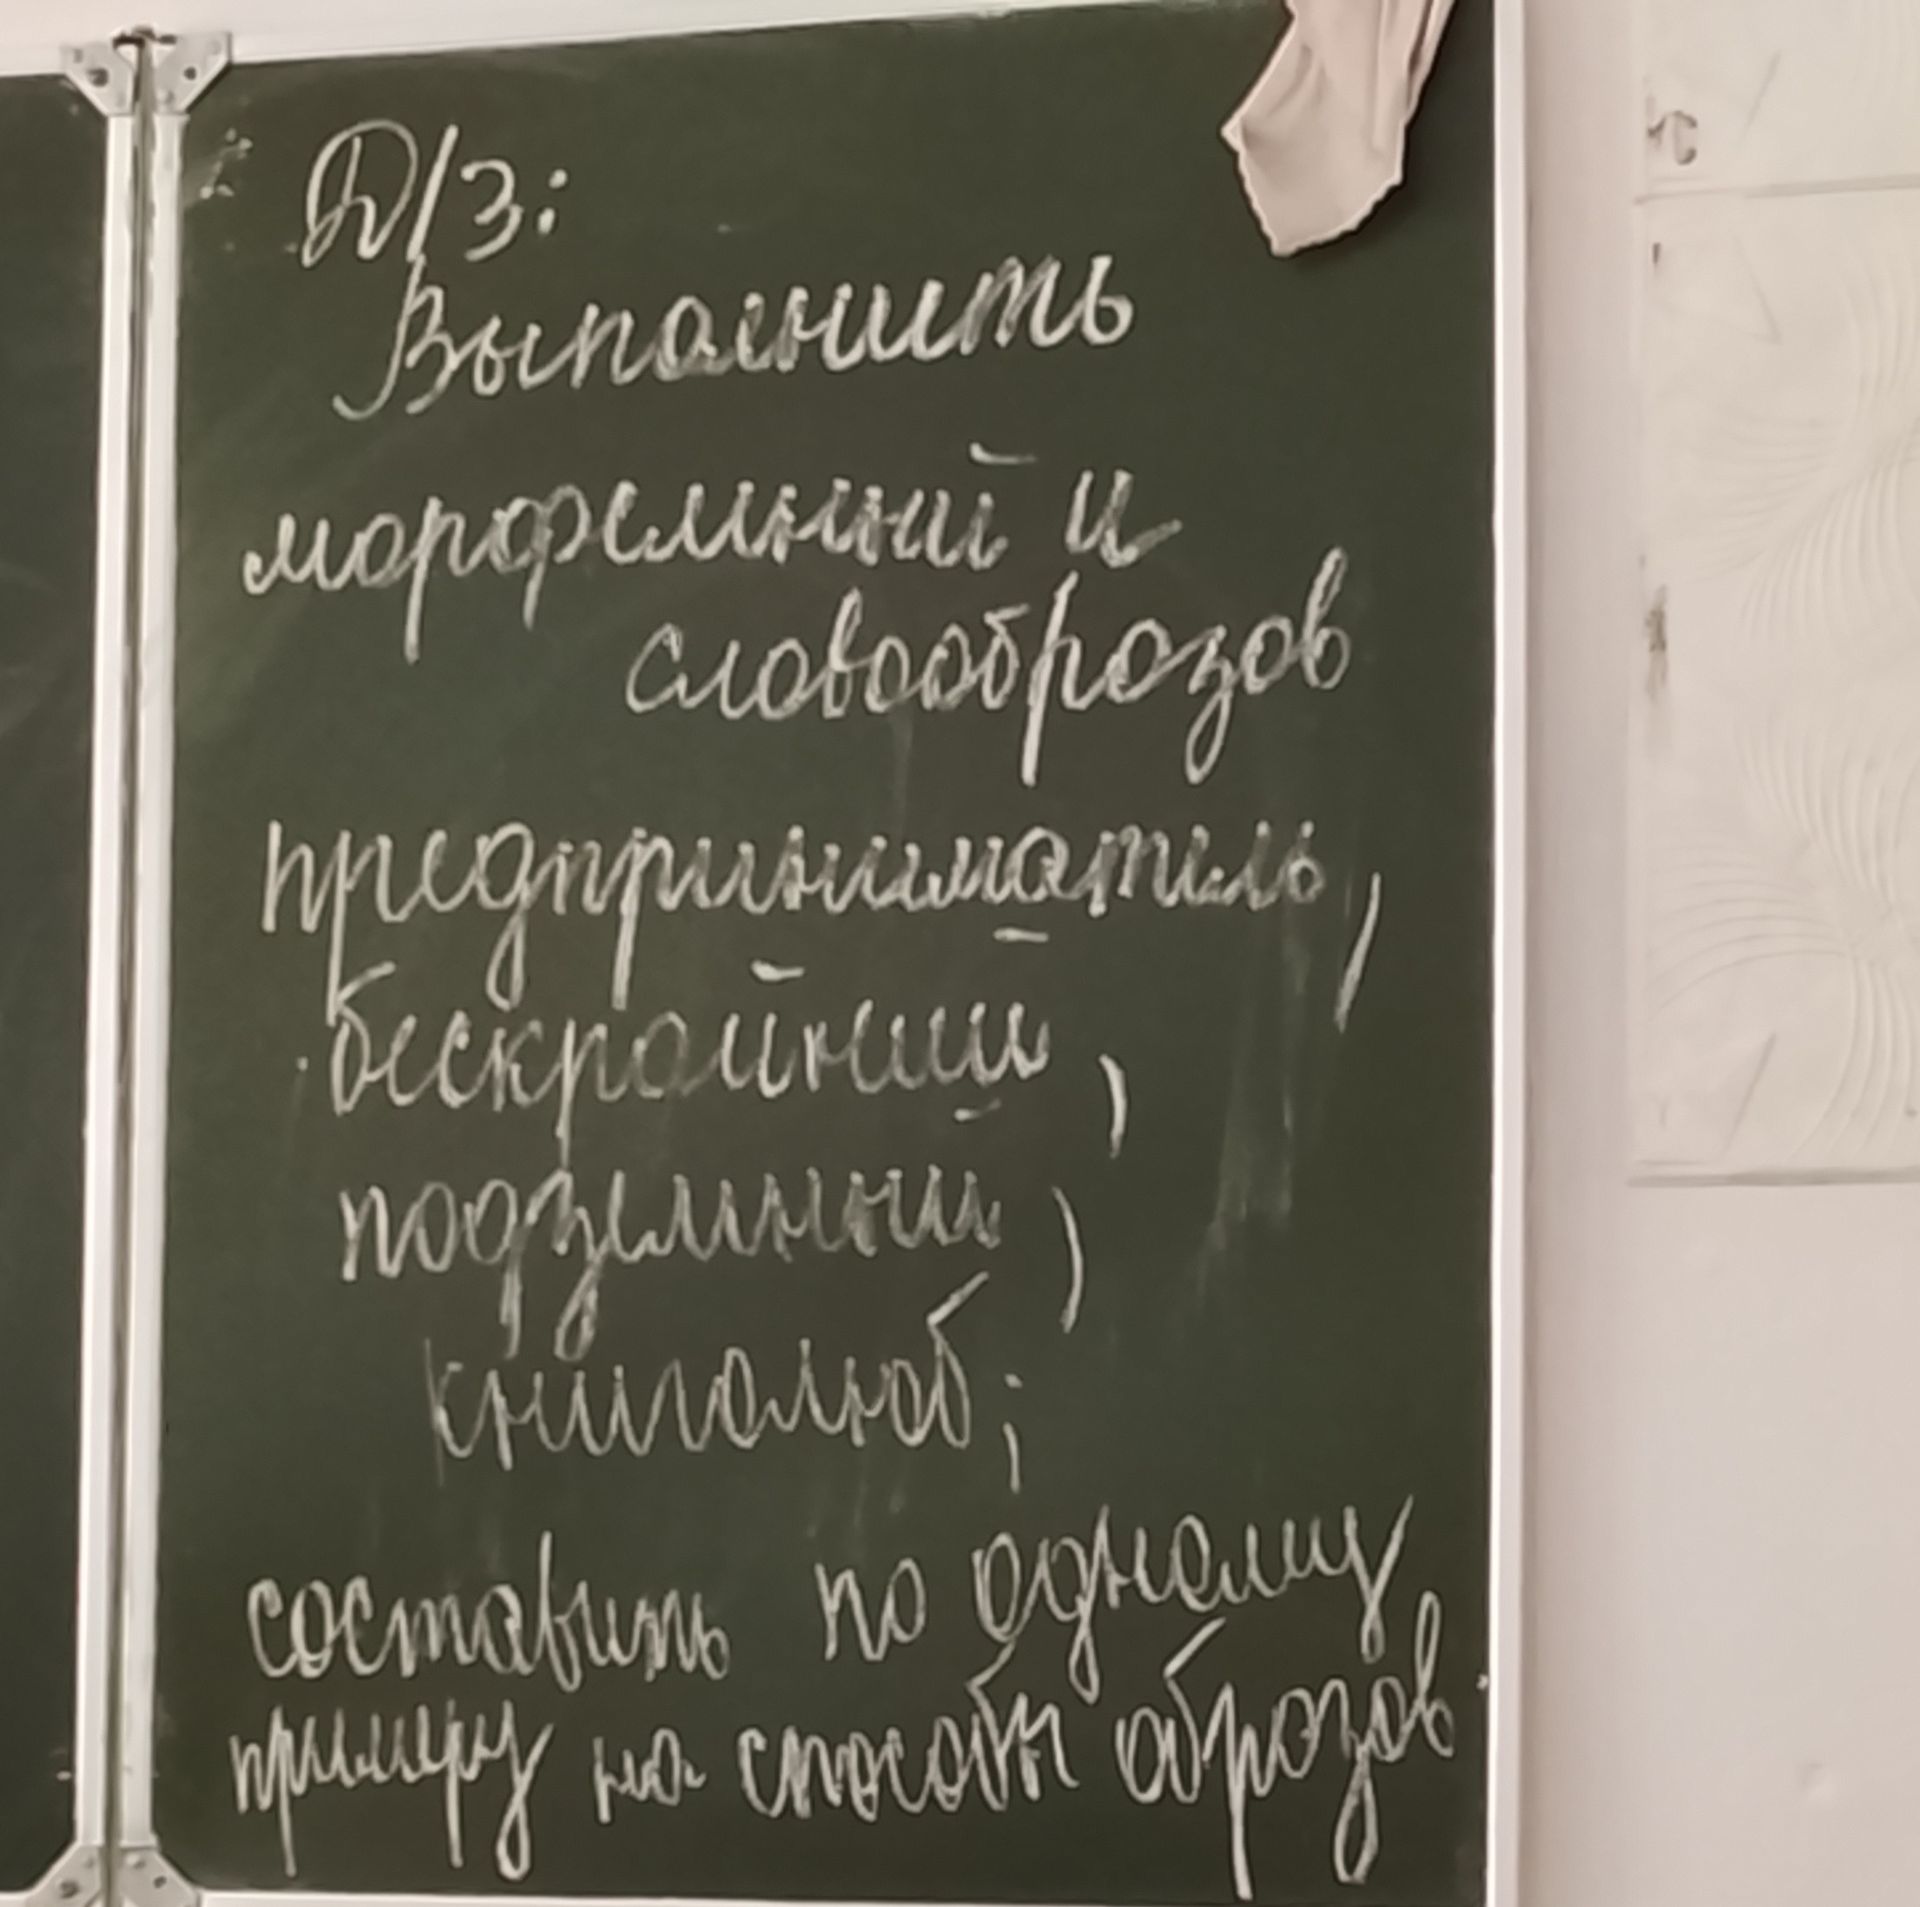 Д/З:
Выполнить
морфемный и
словообразов
предприниматель,
бескрайний,
подземный,
книголюб;
составить по одному
примеру на способы образов.